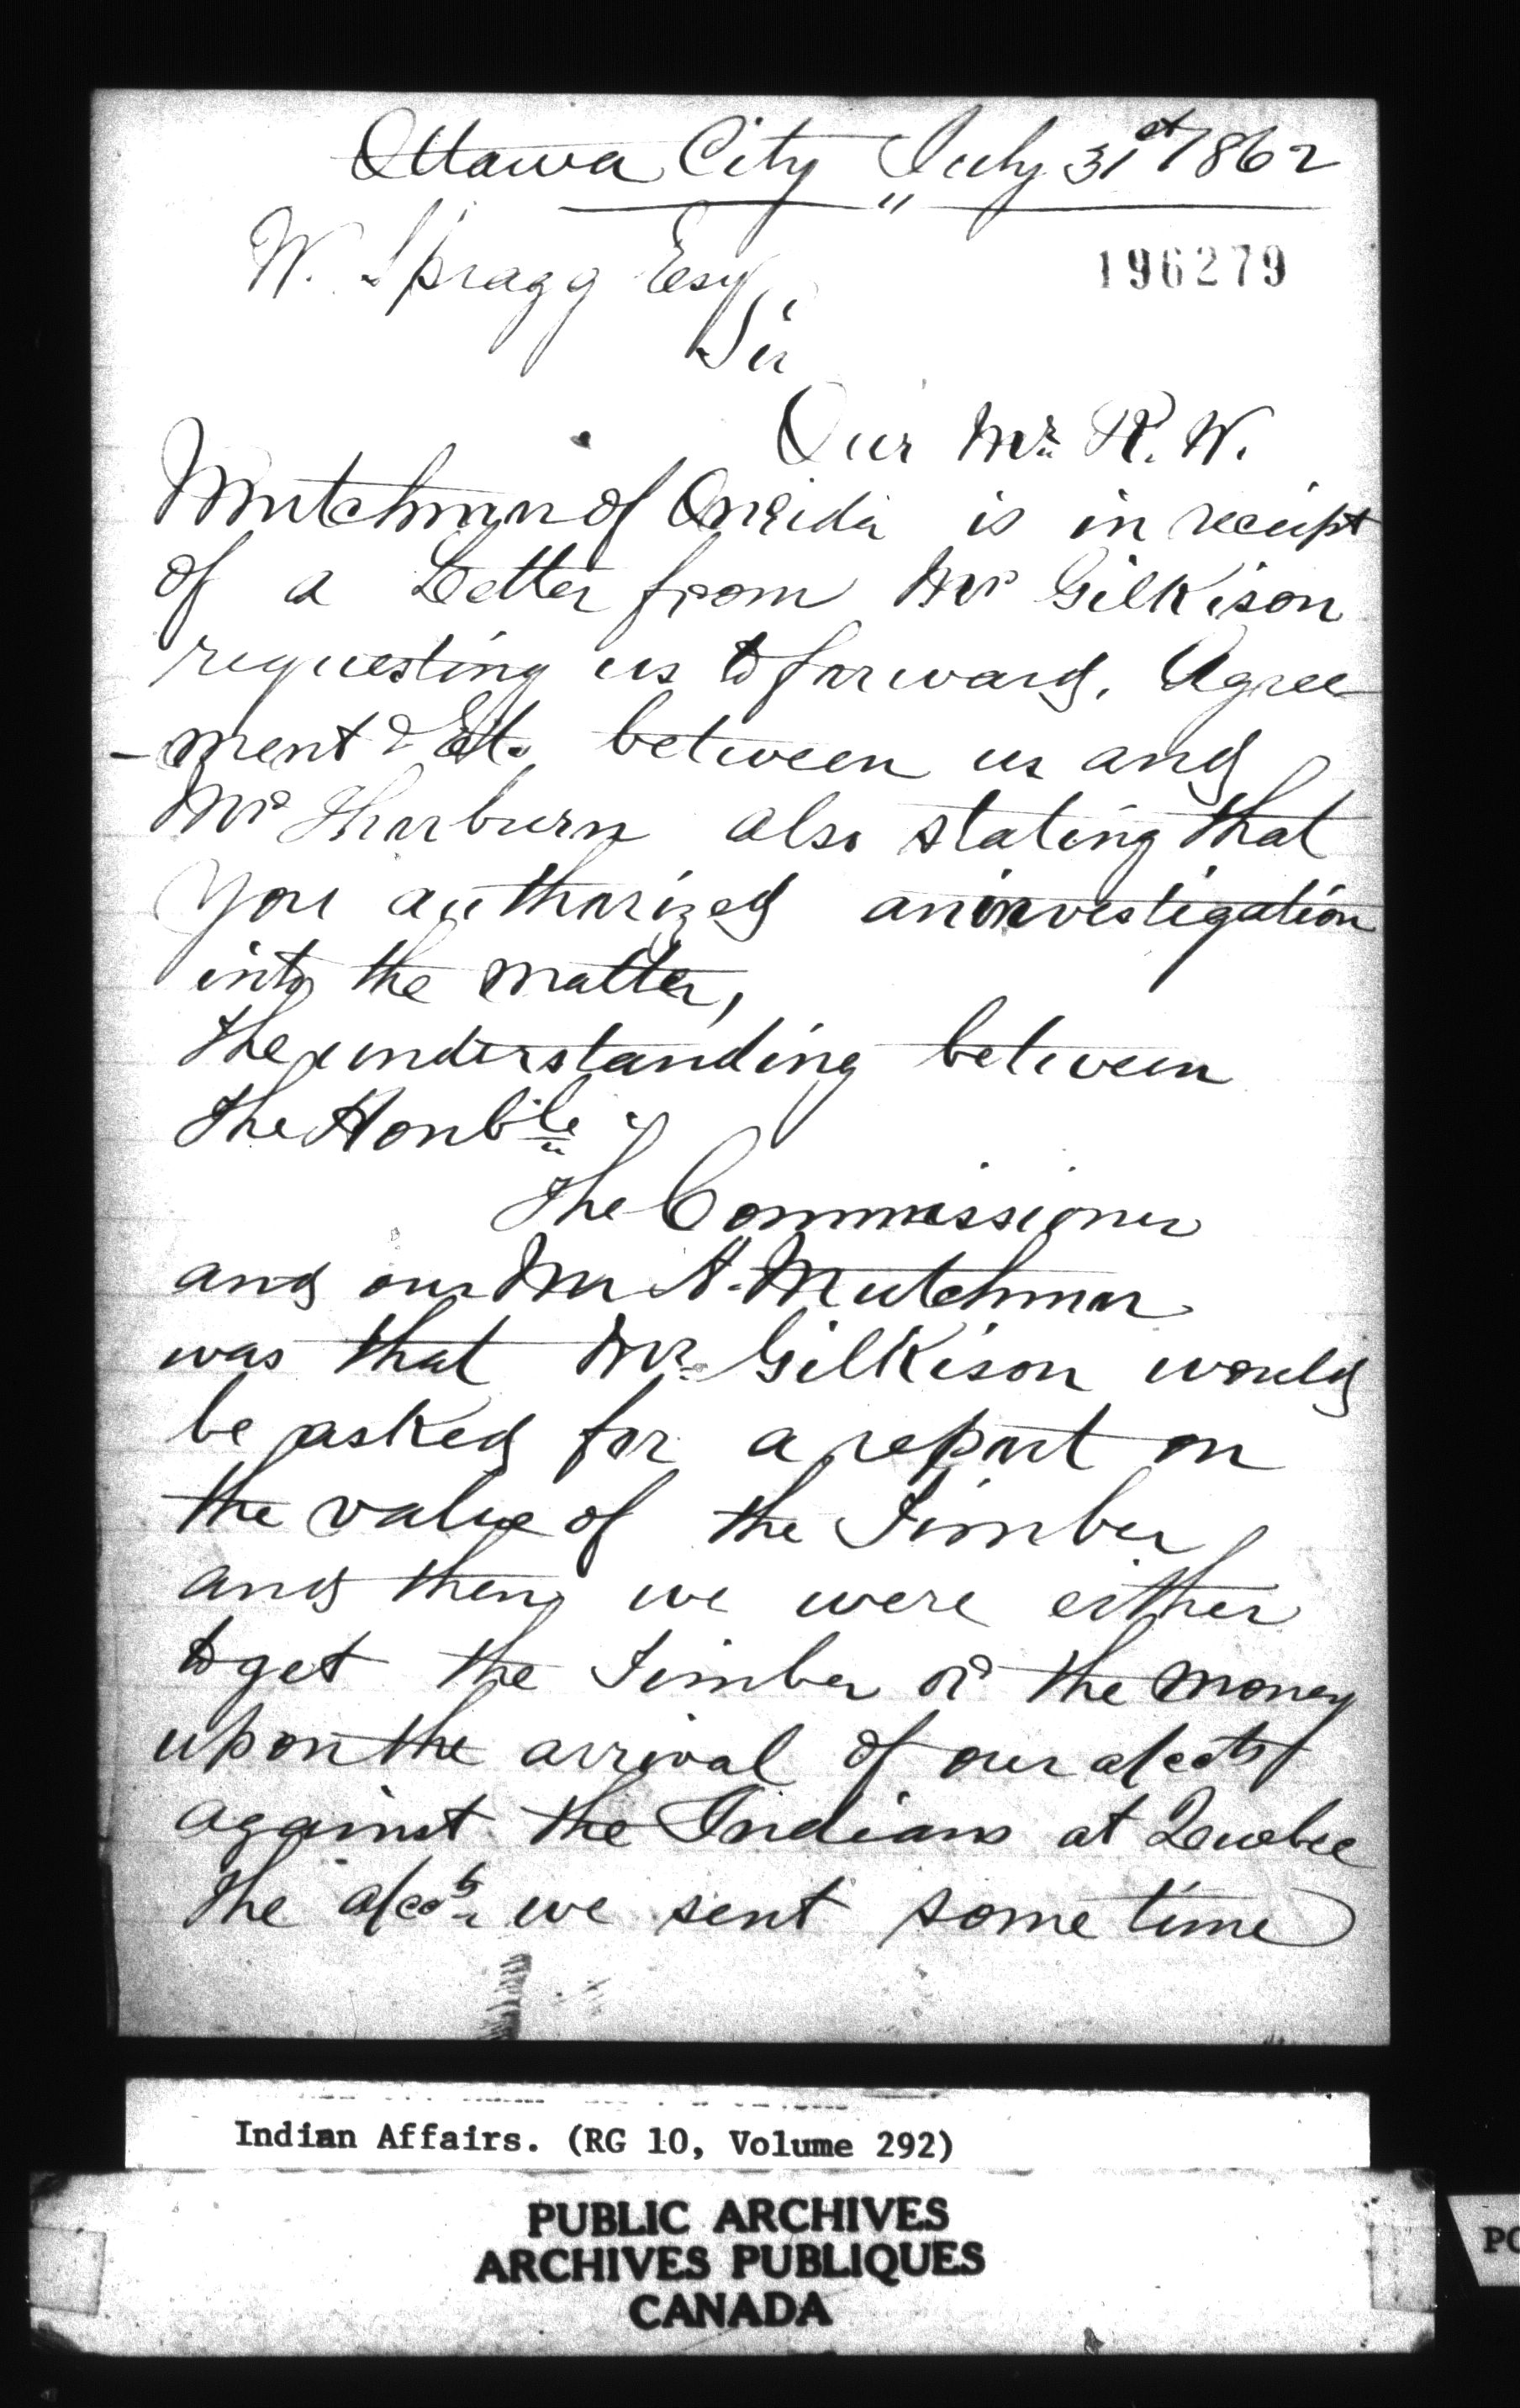 Ottawa City July 31st 1862
W. Spragg Esq
196279
Sir
Our Mr. R. W.
Mutchmor of Oneida is in receipt
of a Letter from Mr Gilkison
requesting us to forward. Agree
-ment & between us and
Mr Thorburn also stating that
you authorized an investigation
into the matter,
The understanding between
The Honble
The Commissioner
and our Mr A. Mutchmor
was that Mr. Gilkison would
be asked for a report on
the value of the Timber
and then we were either
to get the Timber or the money
upon the arrival of our a/cots
against the Indians at Quebec
The a/cots we sent some time
Indian Affairs. (RG 10, Volume 292)
PUBLIC ARCHIVES
ARCHIVES PUBLIQUES
CANADA
PO